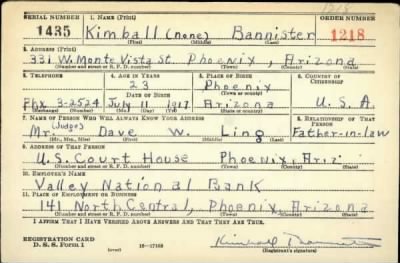 1218
SERIAL NUMBER 1. NAME (Print) ORDER NUMBER
1435 Kimball (none) Bannister 1218
(First) (Middle) (Last)
2. ADDRESS (Print)
331 W. Monte Vista St. Phoenix, Arizona
(Number and street or R. F. D. number) (Town) (County) (State)
3. TELEPHONE 4. AGE IN YEARS 5. PLACE OF BIRTH 6. COUNTRY OF CITIZENSHIP
23 Phoenix
DATE OF BIRTH (Town or county)
Phx 3-2524 July 11 1917 Arizona U.S.A.
(Exchange) (Number) (Mo.) (Day) (Yr.) (State or country)
7. NAME OF PERSON WHO WILL ALWAYS KNOW YOUR ADDRESS 8. RELATIONSHIP OF THAT PERSON
(Judge)
Mr. Dave W. Ling Father-in-law
(Mr., Mrs., Miss) (First) (Middle) (Last)
9. ADDRESS OF THAT PERSON
U.S. Court House Phoenix, Ariz
(Number and street or R. F. D. number) (Town) (County) (State)
10. EMPLOYER'S NAME
Valley National Bank
11. PLACE OF EMPLOYMENT OR BUSINESS
141 North Central, Phoenix, Arizona
(Number and street or R. F. D. number) (Town) (County) (State)
I AFFIRM THAT I HAVE VERIFIED ABOVE ANSWERS AND THAT THEY ARE TRUE.
REGISTRATION CARD
D. S. S. Form 1 (over) 16-17105 Kimball Bannister
(Registrant's signature)